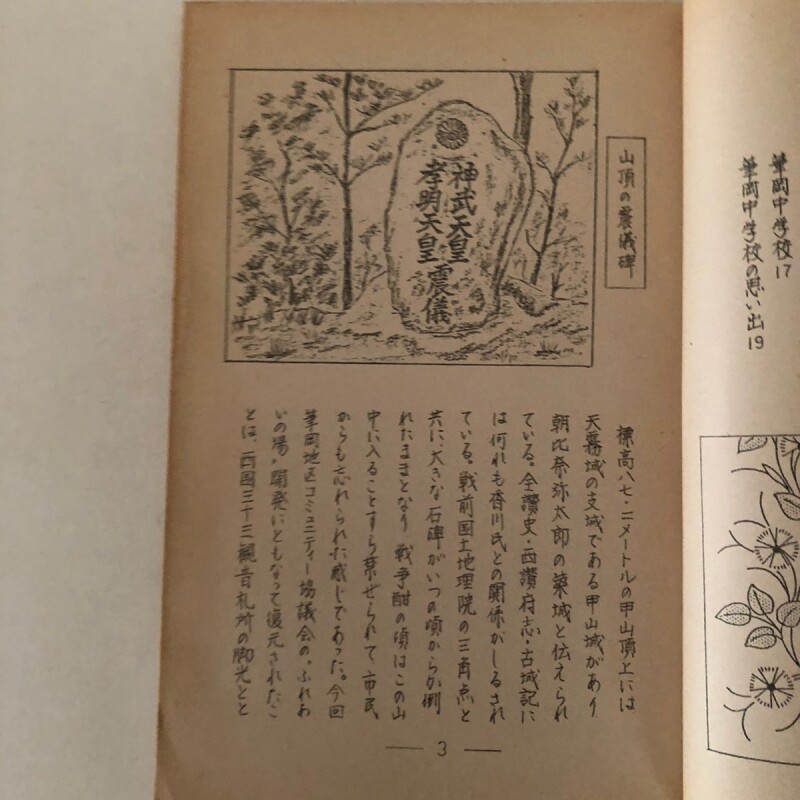 筆岡中学校17
筆岡中学校の思い出19
山頂の震儀碑
神武天皇
孝明天皇 震儀
標高八七・二メートルの甲山頂上には
天霧城の支城である甲山城があり
朝比奈弥太郎の築城と伝えられ
ている。全讃史・西讃府志・古城記に
は何れも香川氏との関係がしるされ
ている。戦前国土地理院の三角点と
共に、大きな石碑がいつの頃からか倒
れたままとなり、戦争酣の頃はこの山
中に入ることすら禁ぜられて、市民
からも忘れられた感じであった。今回
筆岡地区コミュニティー協議会の〝ふれあ
いの場〟開発にともなって復元されたこ
とは、西国三十三観音札所の脚光とと
3